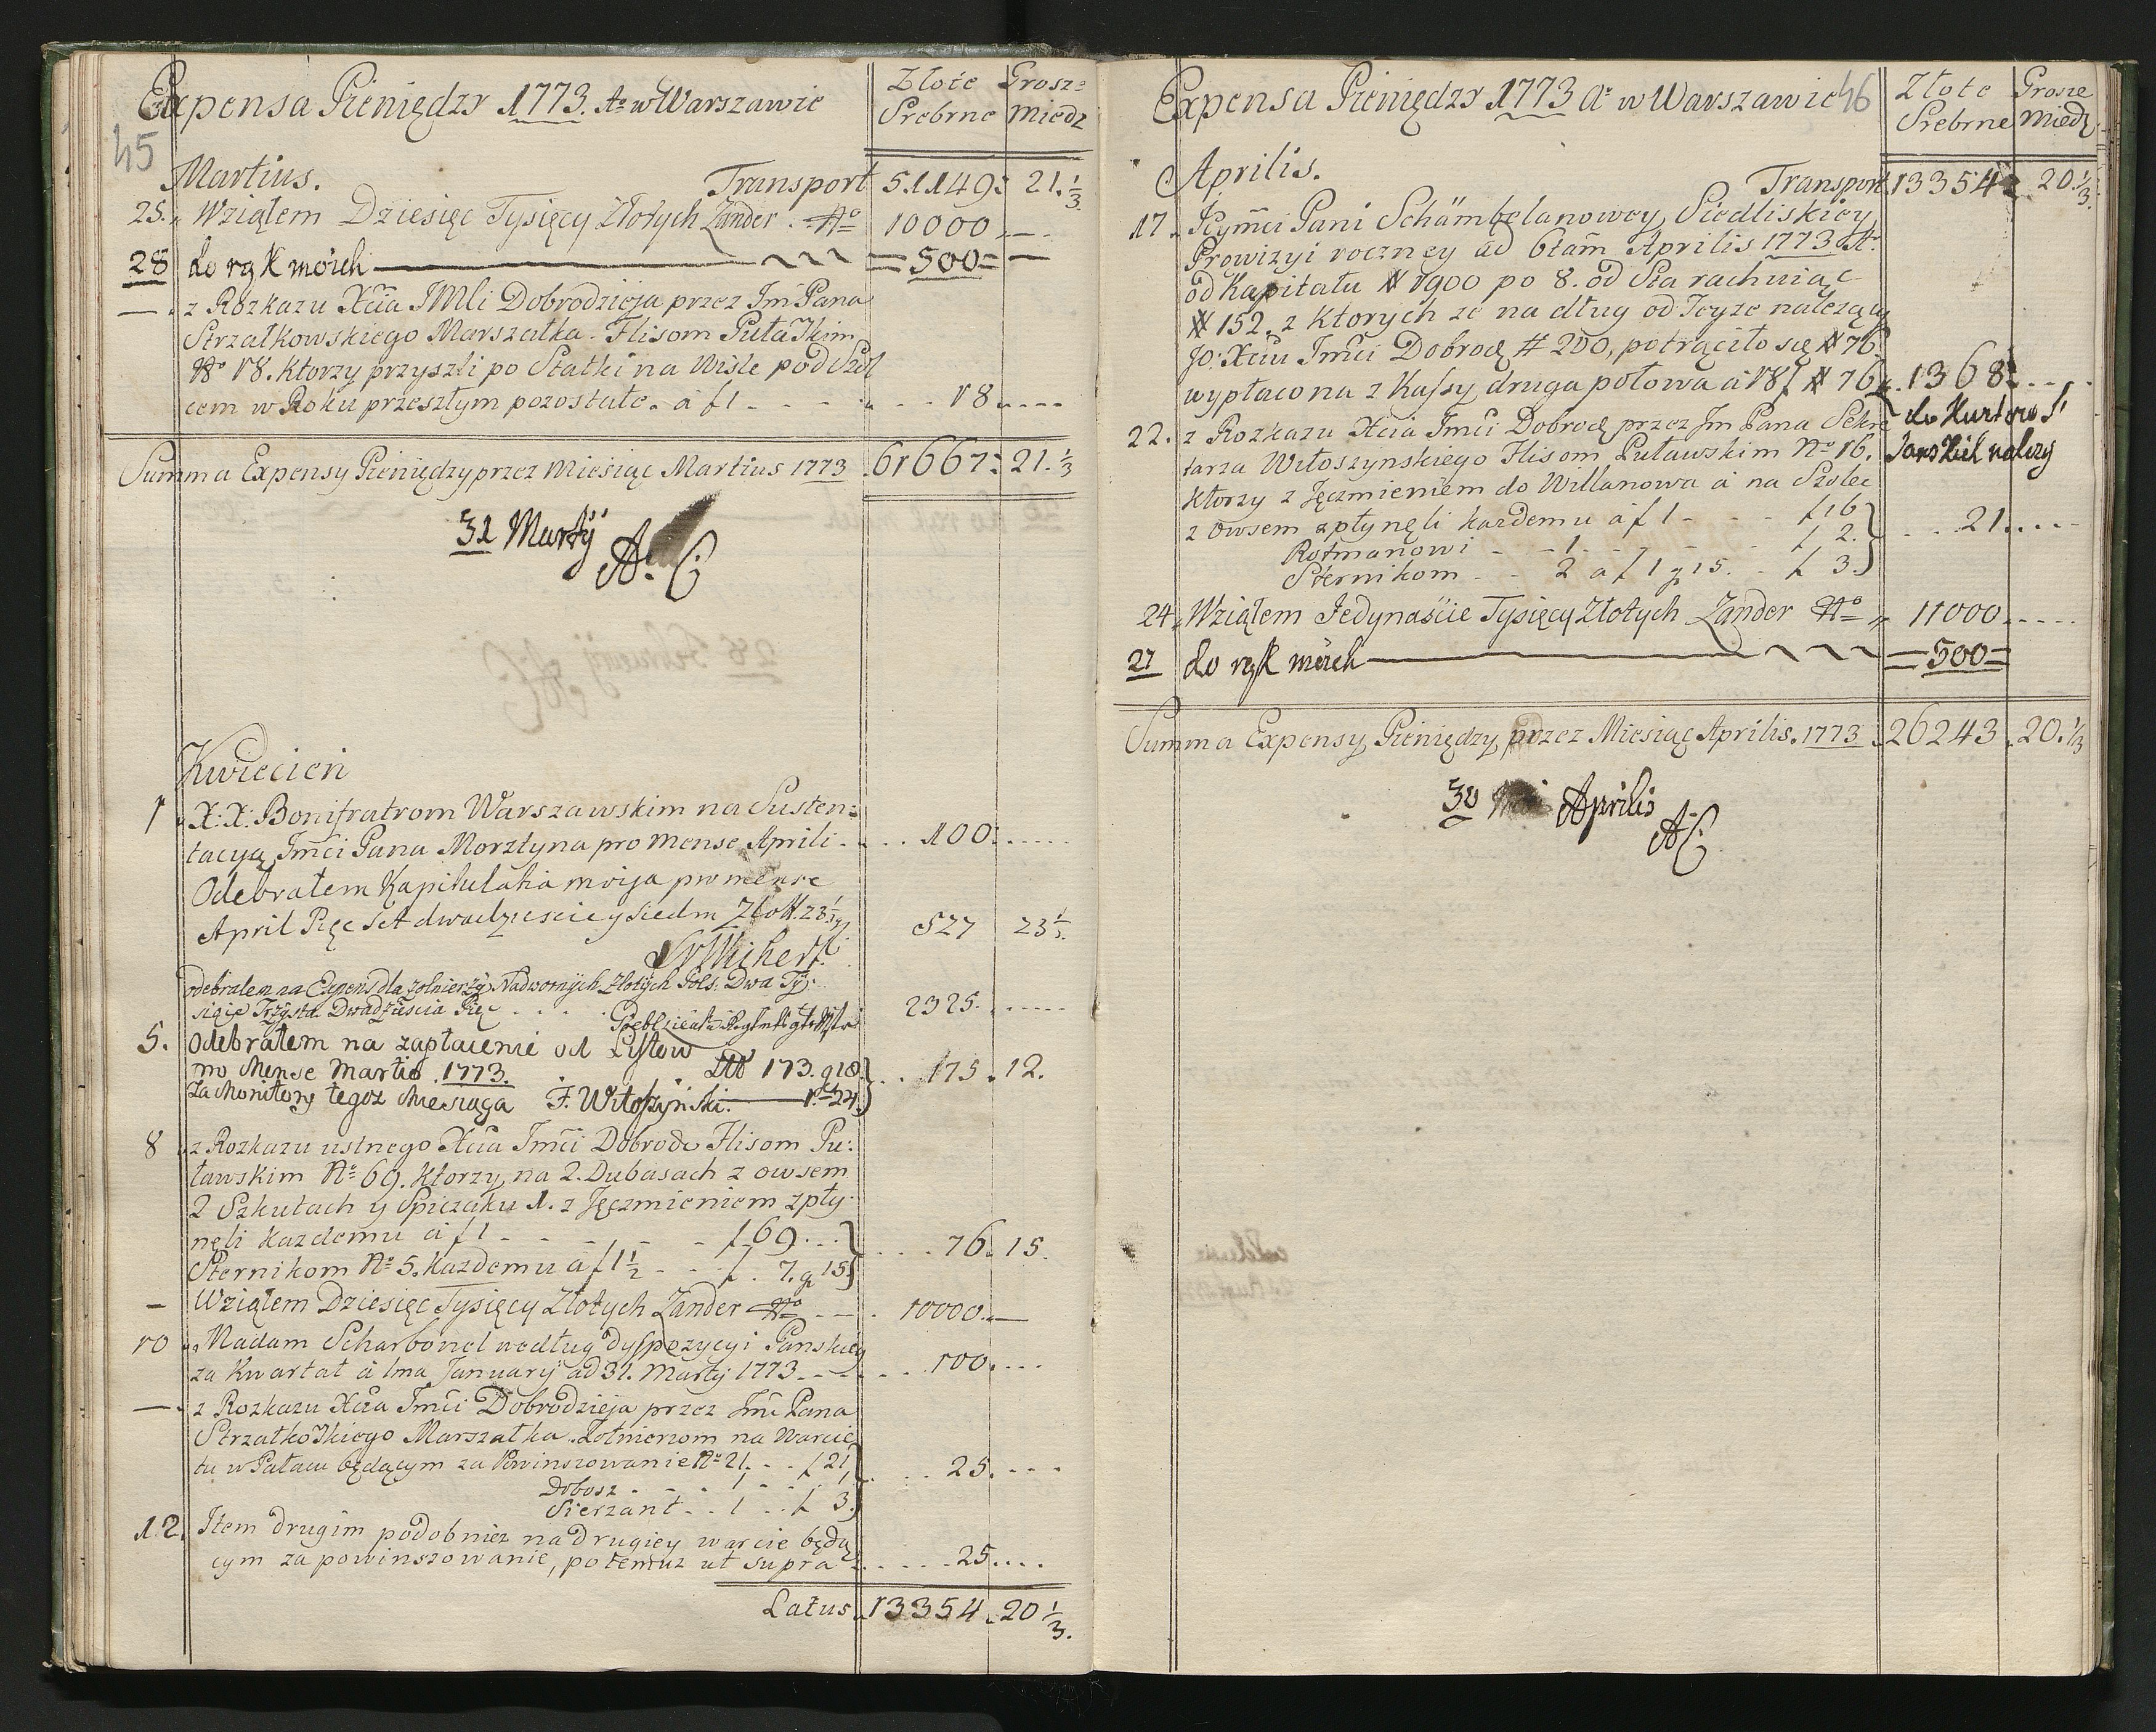 Expensa Pieniędzy 1773. Ao w Warszawie
Złote Grosze
Srebrne Miedz
45
Martius.
Transport 51149. 21. 1/3
25. Wziąłem Dziesięć Tysięcy Złotych Zander No 10000
28 do rąk moich 500
z Rozkazu Xcia JMci Dobrodzieja przez Jm Pana
Strzałkowskiego Marszałka. Flisom Puławskim
No 18. ktorzy przyszli po Statki na Wiśle pod Szol
cem w Roku przeszłym pozostałe. à f 1 18
Summa Expensy Pieniędzy przez Miesiąc Martius 1773 61667. 21. 1/3
31 Martÿ
AC
Kwiecień
1 X: X: Bonifratrom Warszawskim na Susten=
tacyą Jmci Pana Morztyna pro Mense Aprili 100
Odebrałem Kapitulatia moija pro mense
April Pięc set dwadziescie y siedm Zło 23 1/3 527 23 1/3
odebralem na Expens dla zolnierzÿ Nadwornÿch Złotÿch Pols. Dwa Tÿ:
siące Trzÿsta Dwadzieścia Pięc 2325
5. Odebrałem na zapłacenie od Listow
pro Mense Martio 1773. 173. g 18. 175. 12.
za Monitory tegoż Miesiąca F. Witoszyński. 1. 24.
8 z Rozkazu ustnego Xcia Jmci Dobrodz Flisom Pu:
ławskim No 69. Ktorzy na 2. Dubasach z owsem
2 Szkutach y Spiczaku 1. z Jęczmieniem zpły
nęli każdemu à f 1 f 69 76. 15.
Sternikom No 5. każdemu à f 1 1/2 f. 7. g 15
Wziąłem Dziesięć Tysięcy Złotych Zander No 10000
10 Madam Scharbonel według dyspozycyi Panskiey
za Kwartał à 1ma Januarÿ ad 31. Martÿ 1773 100
z Rozkazu Xcia Jmci Dobrodzieja przez Jmc Pana
Strzałkowskiego Marszałka. Żołnierzom na Warcie
tu w Pałacu będącym za Powinszowanie No 21. f 21 25
Dobosz 1 1
Sierżant 1 f 3.
12. Item drugim podobnież na drugiey warcie będą
cym za powinszowanie, potemuż ut supra 25
Latus 13354. 20 1/3.
Expensa Pieniędzy 1773 Ao w Warszawie
46
Złote Grosze
Srebrne Miedz
Aprilis.
Transport 13354 20. 1/3.
17. Jeymci Pani Schambelanowey Siedliskiey
Prowizyi roczney ad 6tam Aprilis 1773 Ao
od Kapitału # 1900 po 8. od Sta rachuiąc
# 152. z ktorych że na dług od Jeyże należący
Jo: Xciu Jmci Dobrodz # 200, potrąciło się # 76.
wypłacona z Kassy druga połowa à 18 f # 76 1368
22. z Rozkazu Xcia Jmci Dobrodz przez Jm Pana Sekre
tarza Witoszynskiego Flisom Puławskim No 16.
ktorzy z Jęczmieniem do Willanowa à na Szolec
z owsem zpłynęli każdemu à f 1 f 16 21
Rotmanowi 1 f 2.
Sternikom 2 a f 1 g 15. f 3.
24. Wziąłem Jedynaście Tysięcy Złotych Zander No 11000
27 do rąk moich 500
Summa Expensy Pieniędzy przez Miesiąc Aprilis. 1773 26243. 20. 1/3
30 Aprilis
AC